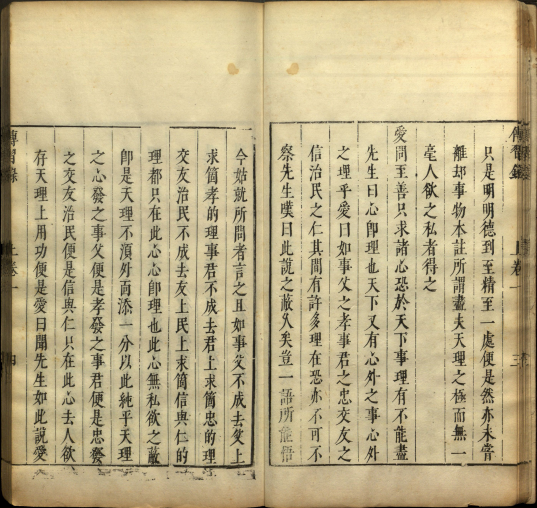 傳習錄 上卷一 三
只是明明德到至精至一處便是然亦未嘗
離却事物本註所謂盡夫天理之極而無一
毫人欲之私者得之
愛問至善只求諸心恐於天下事理有不能盡
先生曰心卽理也天下又有心外之事心外
之理乎愛曰如事父之孝事君之忠交友之
信治民之仁其間有許多理在恐亦不可不
察先生嘆曰此說之蔽久矣豈一語所能悟
今姑就所問者言之且如事父不成去父上
求箇孝的理事君不成去君上求箇忠的理
交友治民不成去友上民上求箇信與仁的
理都只在此心心卽理也此心無私欲之蔽
卽是天理不湏外面添一分以此純乎天理
之心發之事父便是孝發之事君便是忠發
之交友治民便是信與仁只在此心去人欲
存天理上用功便是愛曰聞先生如此說愛
傳習錄 上卷一 四